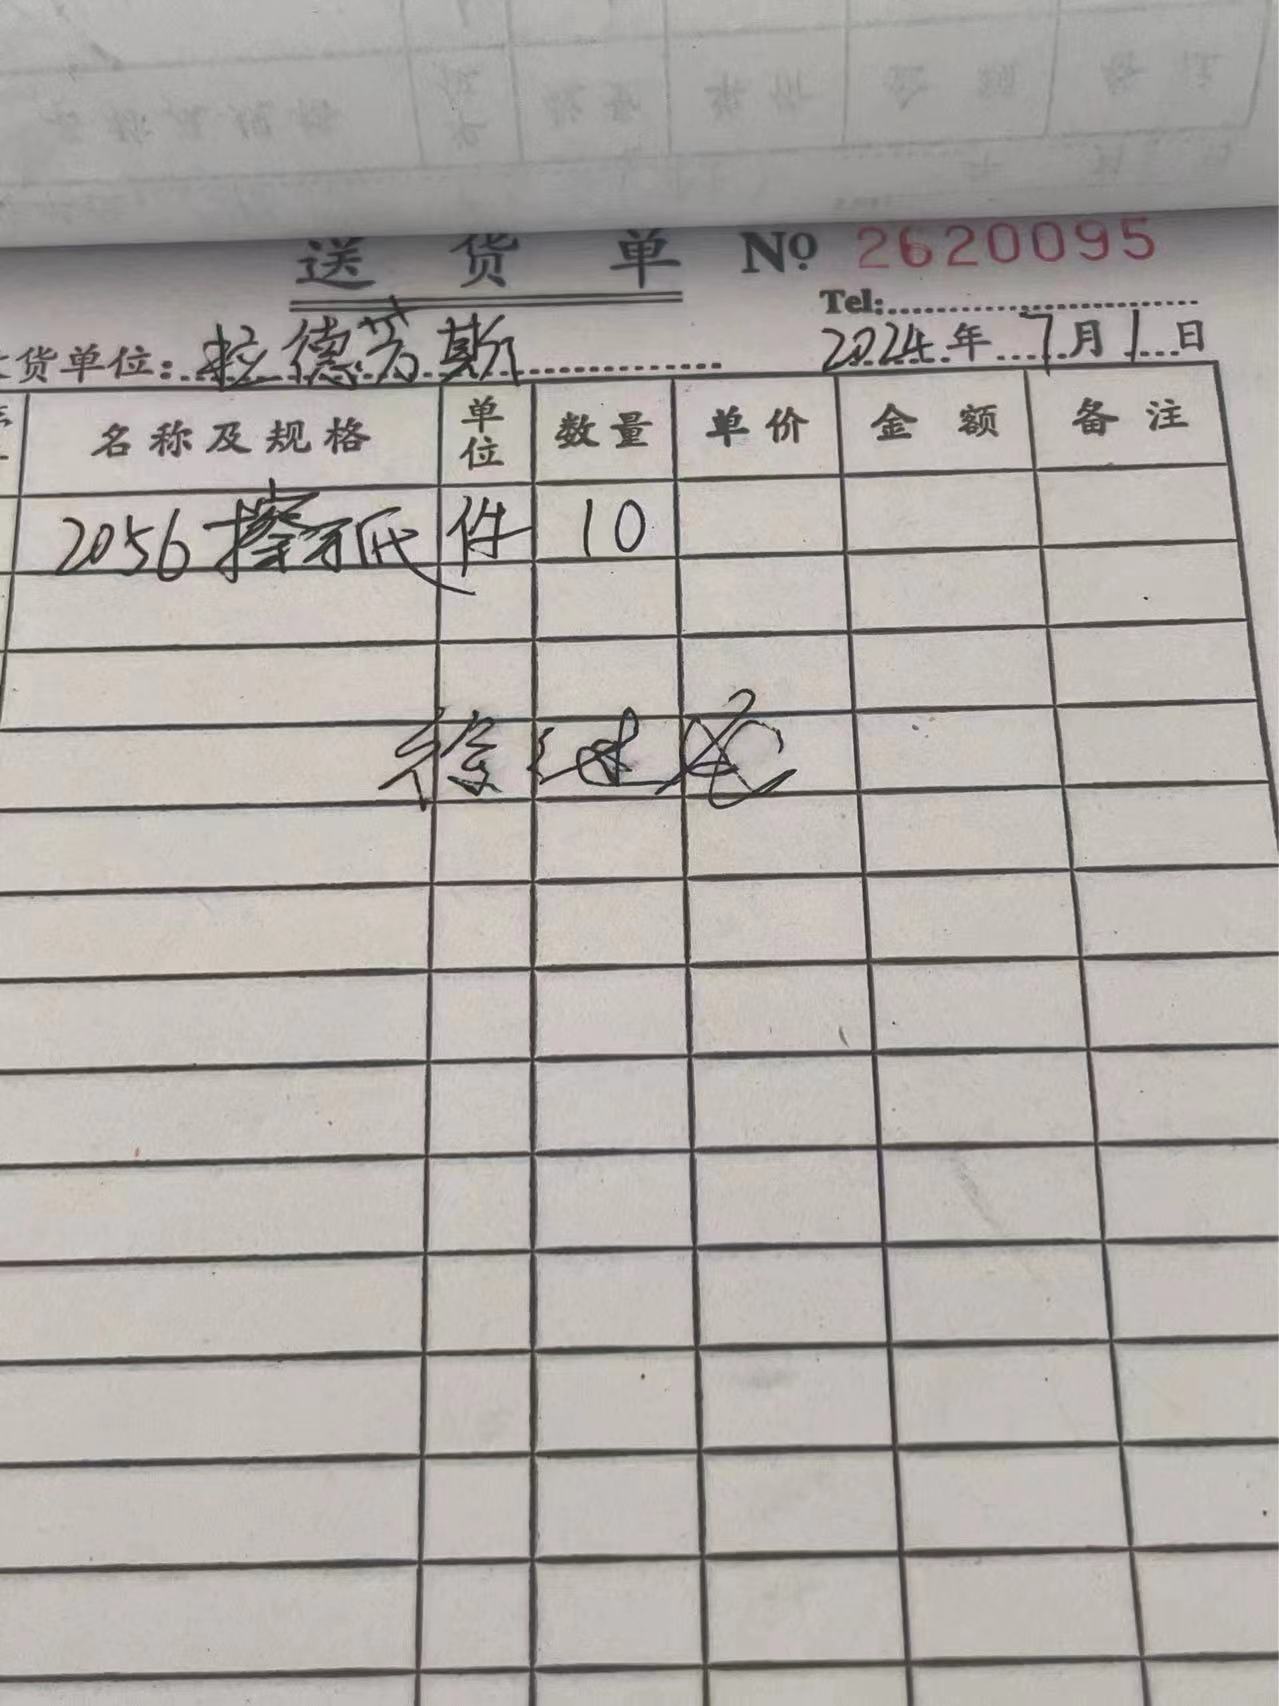 送货单 № 2620095
Tel:
货单位: 拉德芳斯 2024年7月1日
名称及规格 单位 数量 单价 金额 备注
2056擦手纸 件 10